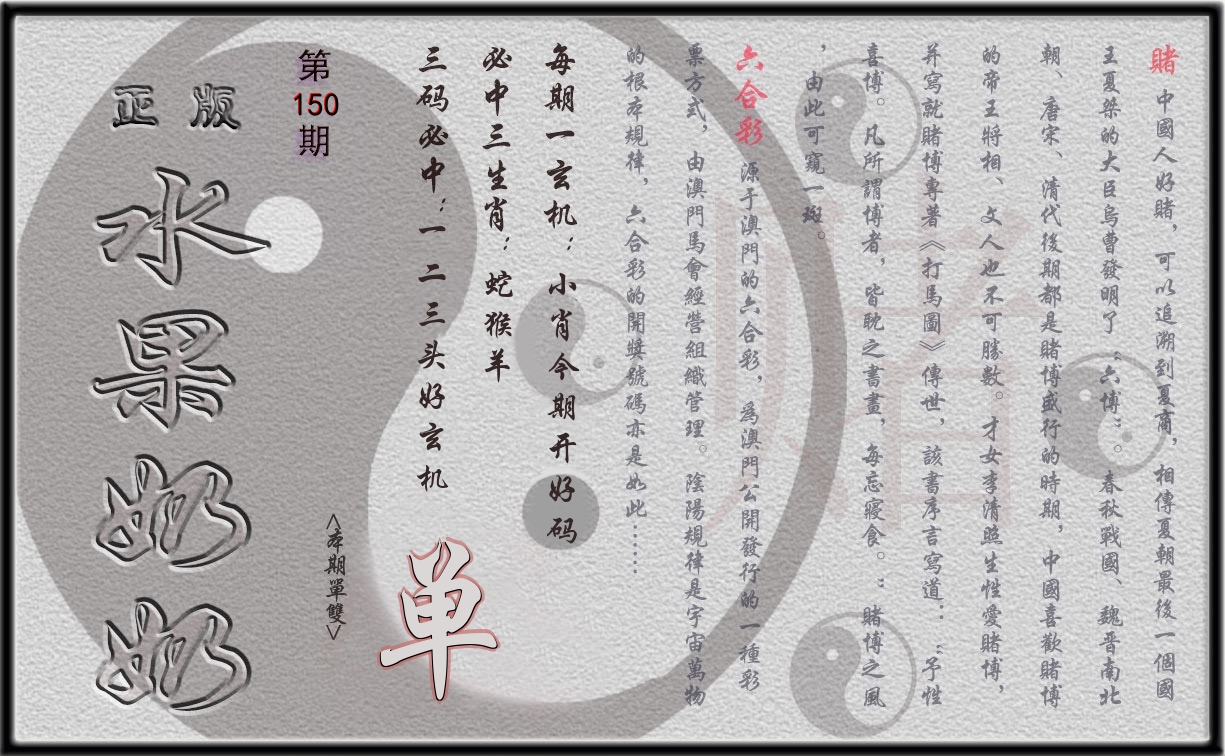 賭 中國人好賭，可以追溯到夏商，相傳夏朝最後一個國
王夏桀的大臣烏曹發明了“六博”。春秋戰國、魏晋南北
朝、唐宋、清代後期都是賭博盛行的時期，中國喜歡賭博
的帝王將相、文人也不可勝數。才女李清照生性愛賭博，
并寫就賭博專著《打馬圖》傳世，該書序言寫道：“予性
喜博。凡所謂博者，皆耽之書畫，每忘寢食。”賭博之風
，由此可窺一斑。
六合彩 源于澳門的六合彩，爲澳門公開發行的一種彩
票方式，由澳門馬會經營組織管理。陰陽規律是宇宙萬物
的根本規律，六合彩的開獎號碼亦是如此……
賭
每期一玄机：小肖今期开好码
必中三生肖：蛇猴羊
三码必中：一二三头好玄机
单
<本期單雙>
第
150
期
正版
水果奶奶